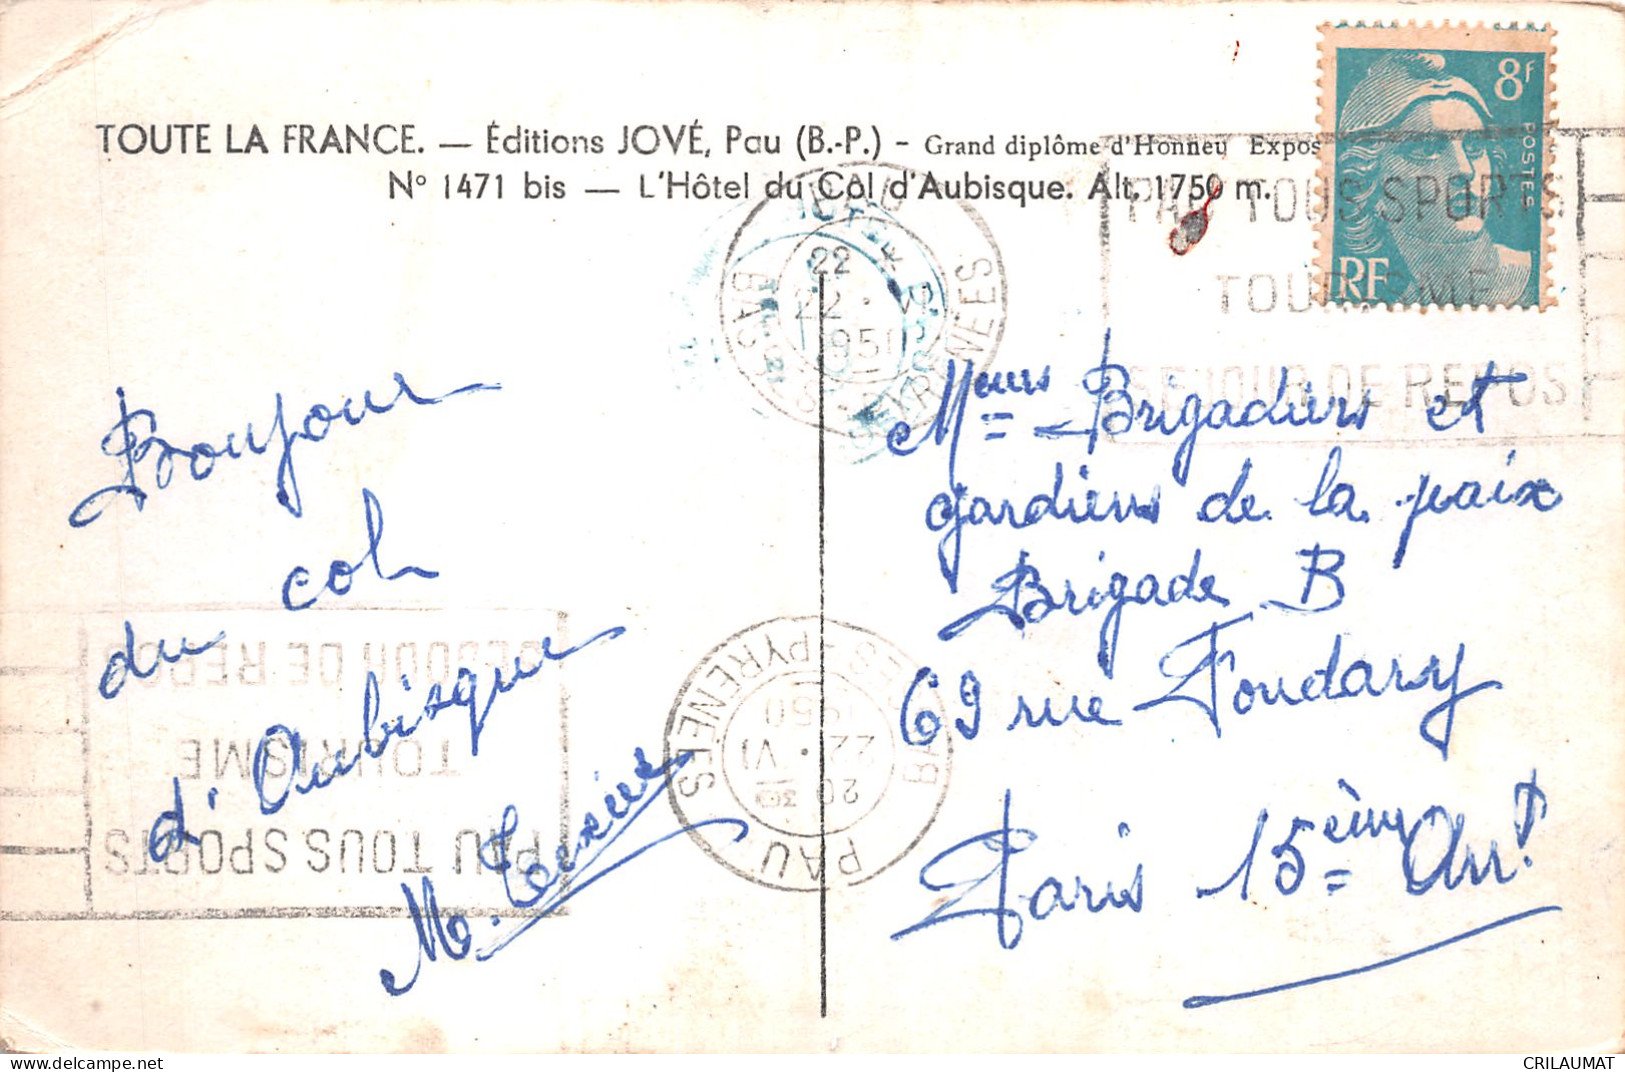 TOUTE LA FRANCE. — Éditions JOVÉ, Pau (B.-P.) - Grand diplôme d'Honneu Expos
N° 1471 bis — L'Hôtel du Col d'Aubisque. Alt. 1750 m.
8f
POSTES
RF
PAU TOUS SPORTS
TOURISME
SEJOUR DE REPOS
22
22 · VI
1950
BASSES-PYRENEES
Bonjour
du col
d'Aubisque
M. Texier
Meurs Brigadiers et
gardiens de la paix
Brigade B
69 rue Foudary
Paris 15ème Arrt
PAU TOUS SPORTS
TOURISME
SEJOUR DE REPOS
PAU
BASSES-PYRENEES
20 30
22 · VI
1950
CRILAUMAT